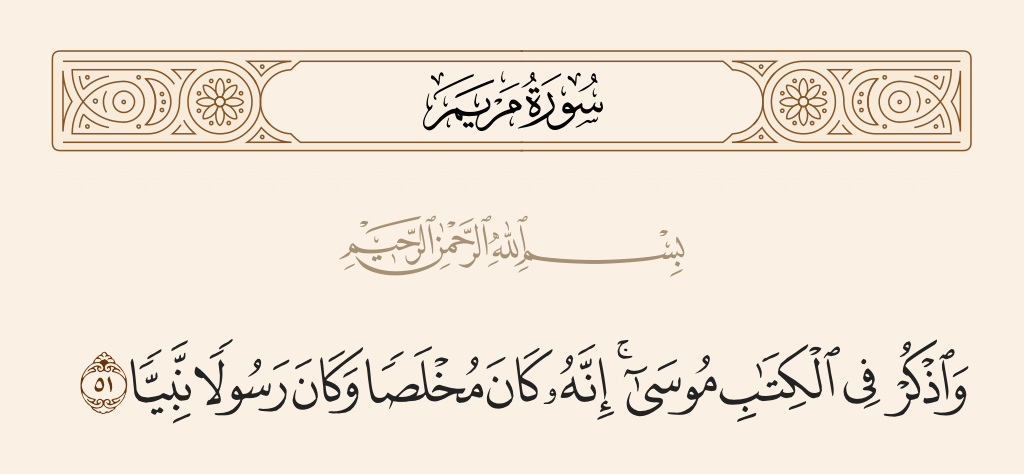 سُورَةُ مَرْيَمَ
بِسْمِ ٱللَّهِ ٱلرَّحْمَٰنِ ٱلرَّحِيمِ
وَٱذْكُرْ فِى ٱلْكِتَٰبِ مُوسَىٰٓ ۚ إِنَّهُۥ كَانَ مُخْلَصًا وَكَانَ رَسُولًا نَّبِيًّا ٥١